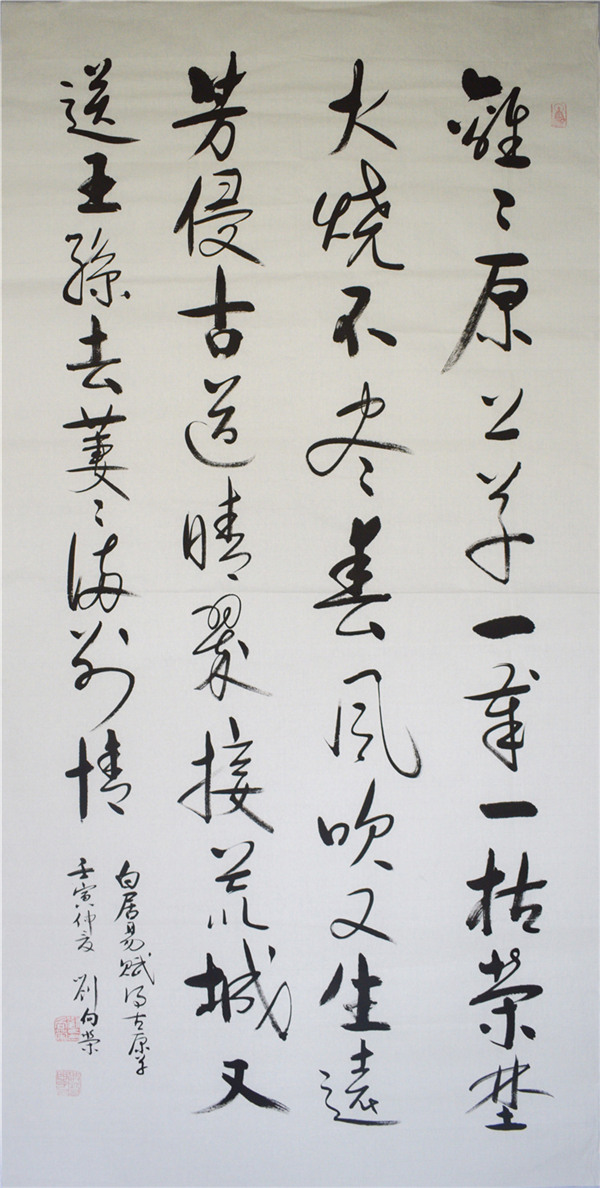 離〻原上草一歲一枯榮埜
火燒不尽春風吹又生遠
芳侵古道晴翠接荒城又
送王孫去萋〻滿別情
白居易賦得古原草
壬寅仲夏 劉向榮